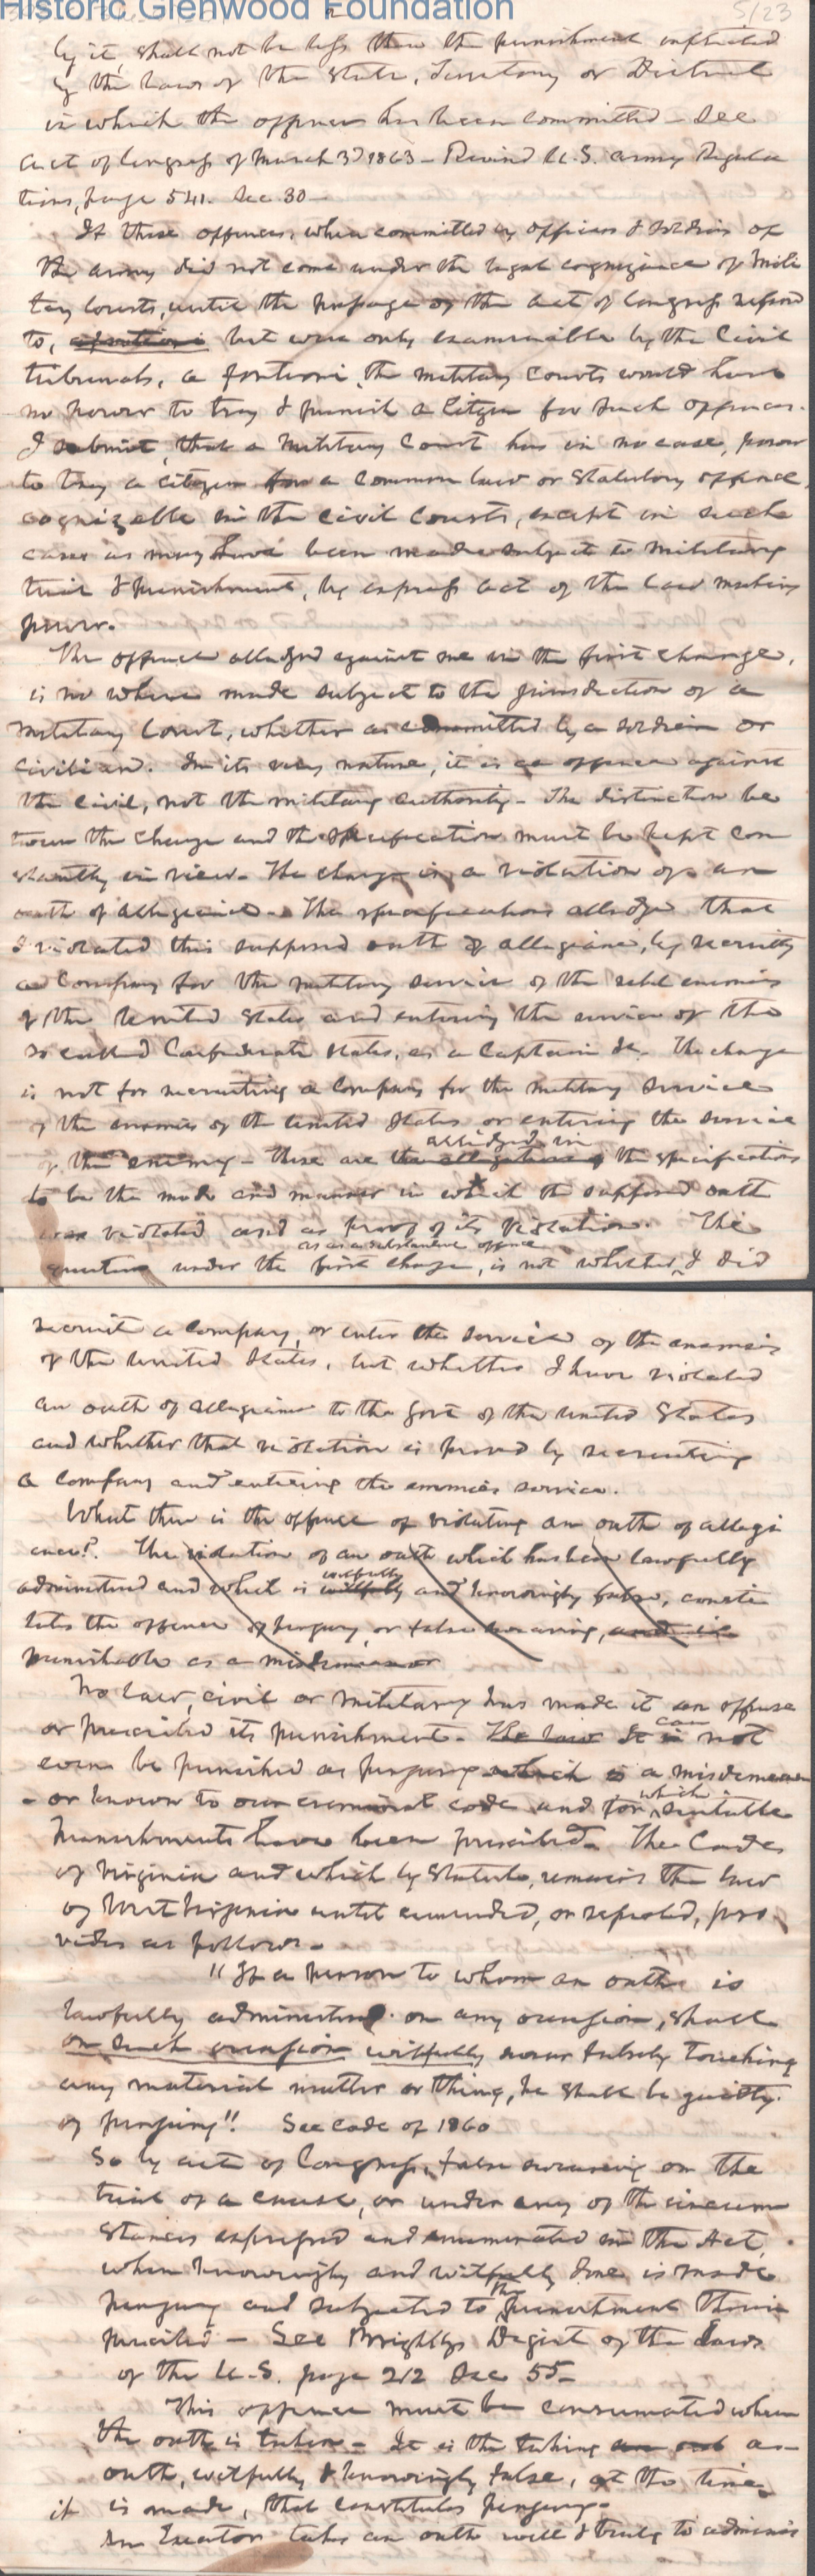 Historic Glenwood Foundation
5/23
by it, shall not be less than the punishment inflicted
by the laws of the State, Territory or District
in which the offence has been committed - See
act of Congress of March 3d 1863 - Revised U.S. army Regula
tions, page 541. Sec. 30 -
If these offences, when committed by officers & soldiers of
the army did not come under the legal cognizance of mili
tary Courts, until the passage of the act of Congress referred
to, but were only examinable by the Civil
tribunals, a fortiori, the military Courts would have
no power to try & punish a Citizen for such offences.
I submit, that a Military Court has in no case, power
to try a citizen for a Common law or Statutory offence,
cognizable in the Civil Courts, except in such
cases as may have been made subject to Military
trial & punishment, by express act of the law making
power.
The offence alledged against me in the first charge,
is no where made subject to the jurisdiction of a
military Court, whether as committed by a soldier or
Civilian. In its very nature, it is an offence against
the Civil, not the military authority - The distinction be
tween the charge and the specification must be kept con
stantly in view. The charge is, a violation of an
oath of allegiance - The specifications alledge that
I violated this supposed oath of allegiance, by recruiting
a Company for the military service of the rebel enemies
of the United States and entering the service of the
so called Confederate States, as a Captain &c. The charge
is not for recruiting a Company for the military service
of the enemies of the United States or entering the service
of the enemy - these are the allegations of alledged in the specifications
to be the mode and manner in which the supposed oath
was violated and as proof of its violation. The
question under the first charge, is not whether, as a substantive offence I did
recruit a company, or enter the service of the enemies
of the United States, but whether I have violated
an oath of allegiance to the Govt of the United States
and whether that violation is proved by recruiting
a Company and entering the enemies service.
What then is the offence of violating an oath of allegi
ance? The violation of an oath which has been lawfully
administered and which is wilfully and knowingly false, consti
tutes the offence of perjury, or false swearing, and is
punishable as a misdemeanor
No law, civil or military has made it an offense
or prescribed its punishment - The law It is can not
even be punished as perjury which is a misdemeanor
- or known to our criminal code and for which suitable
punishments have been prescribed. The Code
of Virginia and which by Statute, remains the law
of West Virginia until amended, or repealed, pro
vides as follows -
"If a person to whom an oath is
lawfully administered on any occasion, shall
on such occasion wilfully swear falsely touching
any material matter or thing, he shall be guilty
of perjury". See Code of 1860
So by act of Congress, false swearing on the
trial of a cause, or under any of the circum
stances expressed and enumerated in the Act,
when knowingly and wilfully done is made
perjury and subjected to the punishment therein
prescribed - See Brightly's Digest of the Laws
of the U.S. page 212 Sec 55 -
This offence must be consumated when
the oath is taken - It is the taking an
oath, wilfully & knowingly false, at the time
it is made, that constitutes perjury.
An Executor takes an oath well & truly to adminis